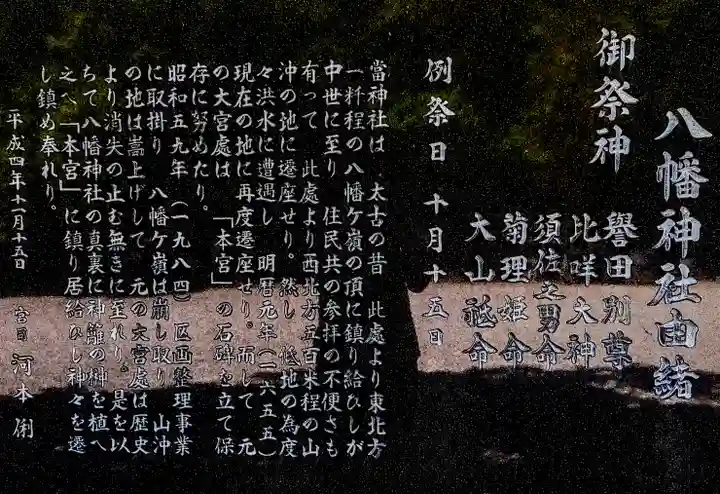 八幡神社由緒
御祭神
譽田別尊
比咩大神
須佐之男命
菊理姫命
大山祗命
例祭日 十月十五日
當神社は 太古の昔 此處より東北方
一粁程の八幡ケ嶺の頂に鎮り給ひしが
中世に至り 住民共の参拝の不便さも
有って 此處より西北方五百米程の山
沖の地に遷座せり。然し 低地の為度
々洪水に遭遇し 明暦元年(一六五五)
現在の地に再度遷座せり。而して 元
の大宮處は 「本宮」の石碑を立て保
存に努めたり。
昭和五九年(一九八四)区画整理事業
に取掛り 八幡ケ嶺は崩し取り 山沖
の地は嵩上げして 元の大宮處は歴史
より消失の止む無きに至れり。是を以
ちて八幡神社の真裏に神籬の榊を植へ
之へ「本宮」に鎮り居給ひし神々を遷
し鎮め奉れり。
平成四年十一月十五日
宮司 河本俐